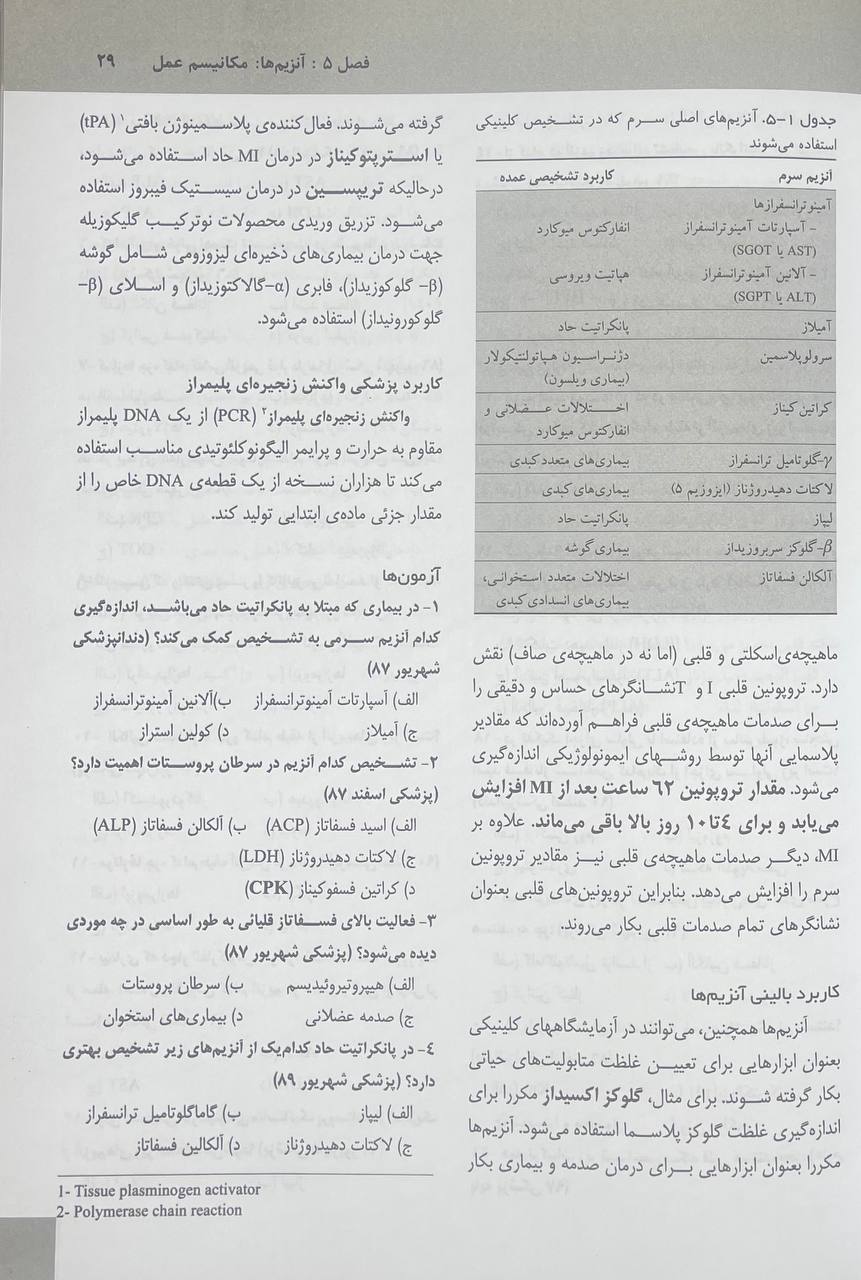 فصل ۵ : آنزیم‌ها: مکانیسم عمل ۲۹
جدول ۱–۵. آنزیم‌های اصلی سرم که در تشخیص کلینیکی
استفاده می‌شوند
آنزیم سرم کاربرد تشخیصی عمده
آمینوترانسفرازها
– آسپارتات آمینوترانسفراز انفارکتوس میوکارد
(AST یا SGOT)
– آلانین آمینوترانسفراز هپاتیت ویروسی
(ALT یا SGPT)
آمیلاز پانکراتیت حاد
سرولوپلاسمین دژنراسیون هپاتولنتیکولار
(بیماری ویلسون)
کراتین کیناز اختلالات عضلانی و
انفارکتوس میوکارد
γ-گلوتامیل ترانسفراز بیماری‌های متعدد کبدی
لاکتات دهیدروژناز (ایزوزیم ۵) بیماری‌های کبدی
لیپاز پانکراتیت حاد
β-گلوکز سربروزیداز بیماری گوشه
آلکالن فسفاتاز اختلالات متعدد استخوانی،
بیماری‌های انسدادی کبدی
ماهیچه‌ی اسکلتی و قلبی (اما نه در ماهیچه‌ی صاف) نقش
دارد. تروپونین قلبی I و T نشانگرهای حساس و دقیقی را
برای صدمات ماهیچه‌ی قلبی فراهم آورده‌اند که مقادیر
پلاسمایی آنها توسط روشهای ایمونولوژیکی اندازه‌گیری
می‌شود. مقدار تروپونین ۶۲ ساعت بعد از MI افزایش
می‌یابد و برای ۴تا۱۰ روز بالا باقی می‌ماند. علاوه بر
MI، دیگر صدمات ماهیچه‌ی قلبی نیز مقادیر تروپونین
سرم را افزایش می‌دهد. بنابراین تروپونین‌های قلبی بعنوان
نشانگرهای تمام صدمات قلبی بکار می‌روند.
کاربرد بالینی آنزیم‌ها
آنزیم‌ها همچنین، می‌توانند در آزمایشگاههای کلینیکی
بعنوان ابزارهایی برای تعیین غلظت متابولیت‌های حیاتی
بکار گرفته شوند. برای مثال، گلوکز اکسیداز مکررا برای
اندازه‌گیری غلظت گلوکز پلاسما استفاده می‌شود. آنزیم‌ها
مکررا بعنوان ابزارهایی برای درمان صدمه و بیماری بکار
گرفته می‌شوند. فعال‌کننده‌ی پلاسمینوژن بافتی۱ (tPA)
یا استرپتوکیناز در درمان MI حاد استفاده می‌شود،
درحالیکه تریپسین در درمان سیستیک فیبروز استفاده
می‌شود. تزریق وریدی محصولات نوترکیب گلیکوزیله
جهت درمان بیماری‌های ذخیره‌ای لیزوزومی شامل گوشه
(β- گلوکوزیداز)، فابری (α-گالاکتوزیداز) و اسلای (β-
گلوکورونیداز) استفاده می‌شود.
کاربرد پزشکی واکنش زنجیره‌ای پلیمراز
واکنش زنجیره‌ای پلیمراز۲ (PCR) از یک DNA پلیمراز
مقاوم به حرارت و پرایمر الیگونوکلئوتیدی مناسب استفاده
می‌کند تا هزاران نسخه از یک قطعه‌ی DNA خاص را از
مقدار جزئی ماده‌ی ابتدایی تولید کند.
آزمون‌ها
۱- در بیماری که مبتلا به پانکراتیت حاد می‌باشد، اندازه‌گیری
کدام آنزیم سرمی به تشخیص کمک می‌کند؟ (دندانپزشکی
شهریور ۸۷)
الف) آسپارتات آمینوترانسفراز ب)آلانین آمینوترانسفراز
ج) آمیلاز د) کولین استراز
۲- تشخیص کدام آنزیم در سرطان پروستات اهمیت دارد؟
(پزشکی اسفند ۸۷)
الف) اسید فسفاتاز (ACP) ب) آلکالن فسفاتاز (ALP)
ج) لاکتات دهیدروژناز (LDH)
د) کراتین فسفوکیناز (CPK)
۳- فعالیت بالای فسفاتاز قلیائی به طور اساسی در چه موردی
دیده می‌شود؟ (پزشکی شهریور ۸۷)
الف) هیپروتیروئیدیسم ب) سرطان پروستات
ج) صدمه عضلانی د) بیماری‌های استخوان
۴- در پانکراتیت حاد کدام‌یک از آنزیم‌های زیر تشخیص بهتری
دارد؟ (پزشکی شهریور ۸۹)
الف) لیپاز ب) گاماگلوتامیل ترانسفراز
ج) لاکتات دهیدروژناز د) آلکالین فسفاتاز
1- Tissue plasminogen activator
2- Polymerase chain reaction